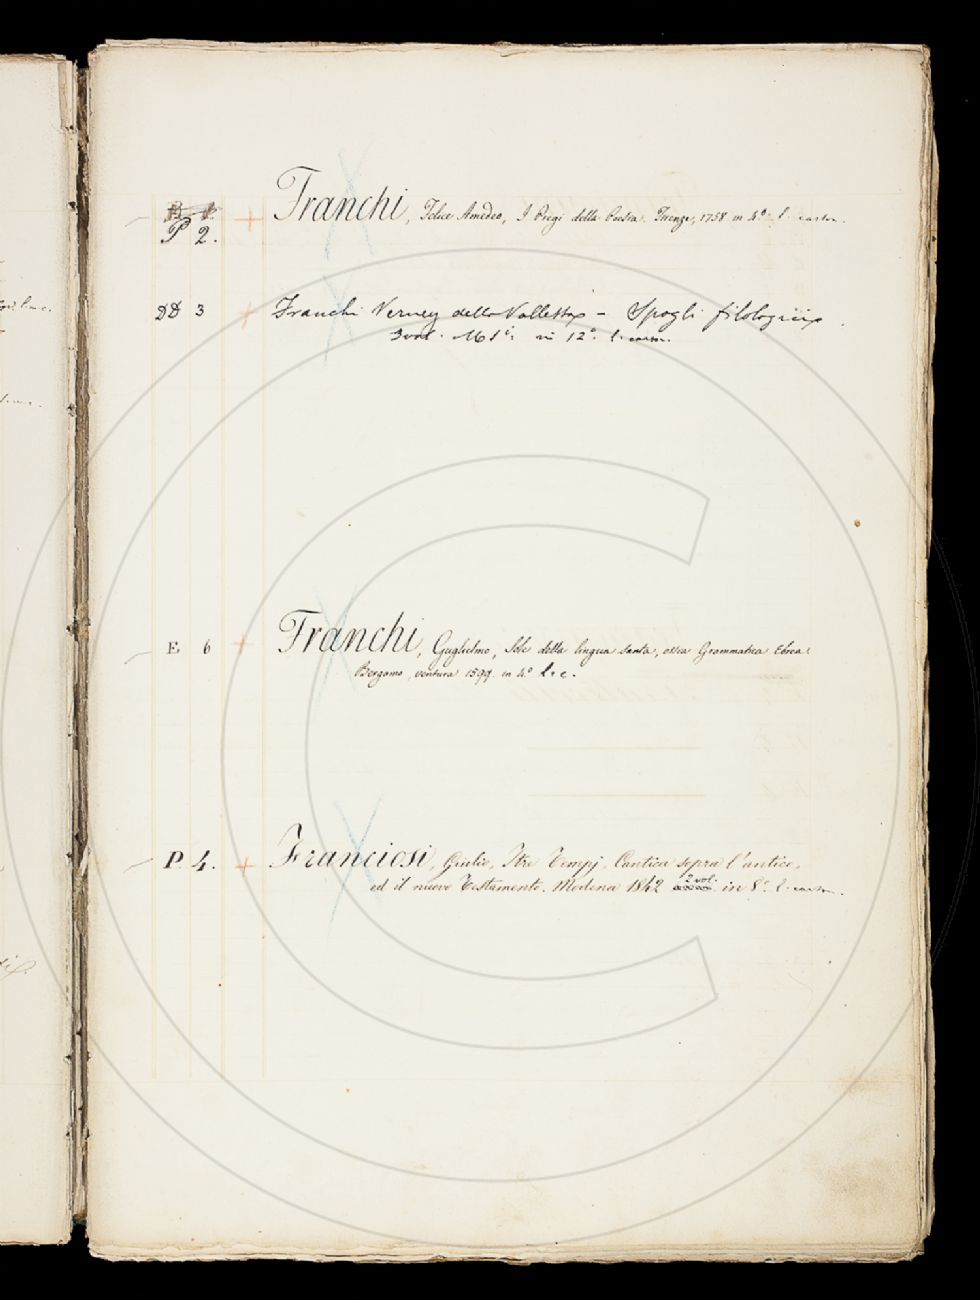 P 2. Franchi, Felice Amedeo, I Pregi della Poesia. Firenze, 1758 in 4.º l. carton.
DD 3 Franchi Verney della Valletta – Spogli filologici
3 vol. in 12º. l. carton.
E 6 Franchi, Guglielmo, Sole della lingua santa, ossia Grammatica Ebrea.
Bergamo, ventura 1599 in 4.º l. c.
P. 4. Franciosi, Giulio, I tre Tempj, Cantica sopra l'antico,
ed il nuovo Testamento. Modena 1842 2 vol. in 8.º l. carton.